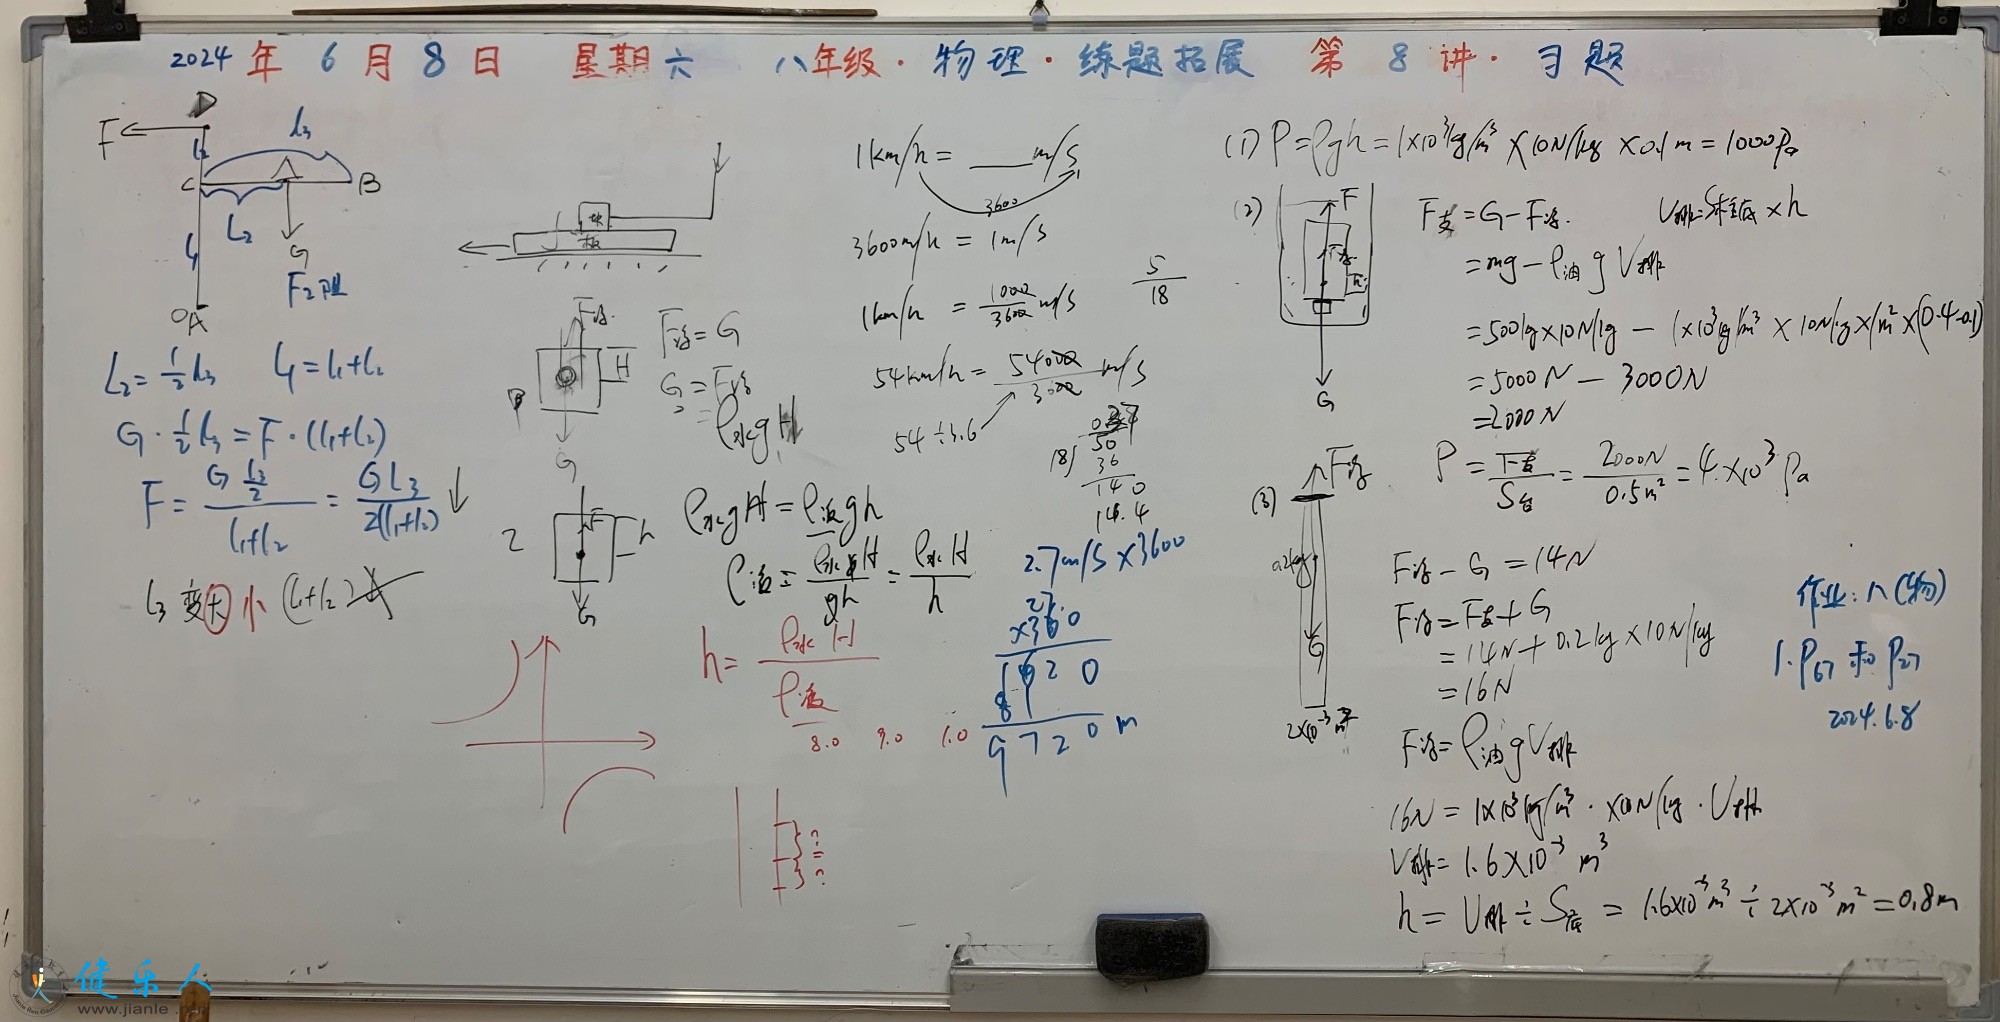 2024年6月8日 星期六 八年级·物理·练题拓展 第8讲·习题
F
l₂
l₃
C
B
L₂
l₁
G
F₂阻
A
L₂=½l₃ l₁=l₁+l₂
G·½l₃=F·(l₁+l₂)
F=G l₃/2/l₁+l₂=GL₃/2(l₁+l₂)↓
l₃变大小(l₁+l₂)
块
木板
F浮
H
G
F浮=G
G=F浮
=ρ水gH
2
F
h
G
ρ水gH=ρ液gh
ρ液=ρ水gH/gh=ρ水H/h
h=ρ水H/ρ液
8.0 9.0 1.0
?
=
?
1km/h=___m/s
3600
3600m/h=1m/s
1km/h=1000/3600m/s
5/18
54km/h=54000/3600m/s
54÷3.6
18
50
36
140
14.4
2.7m/s×3600
27.
×360
1620
81
9720m
(1)P=ρgh=1×10³kg/m³×10N/kg×0.1m=1000Pa
(2)
F
F浮
h
G
F支=G-F浮 V排=S柱底×h
=mg-ρ油gV排
=500kg×10N/kg-1×10³kg/m³×10N/kg×1m²×(0.4-0.1)
=5000N-3000N
=2000N
P=F支/S台=2000N/0.5m²=4×10³Pa
(3)
F浮
0.2kg
G
2×10⁻³m²
F浮-G=14N
F浮=F支+G
=14N+0.2kg×10N/kg
=16N
F浮=ρ油gV排
16N=1×10³kg/m³·×10N/kg·V排
V排=1.6×10⁻³m³
h=V排÷S底=1.6×10⁻³m³÷2×10⁻³m²=0.8m
作业:八(物)
1.P67和P27
2024.6.8
健乐人
www.jianle